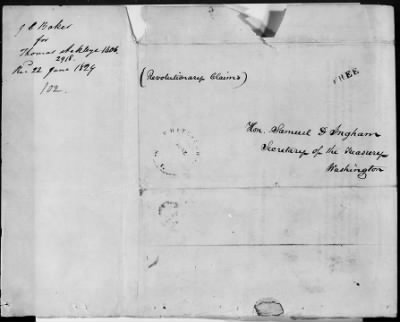 J C Baker
for
Thomas
2918.
Rec. 22 June 1829
102.
(Revolutionary Claims)
FREE
Hon. Samuel D Ingham
Secretary of the Treasury
Washington